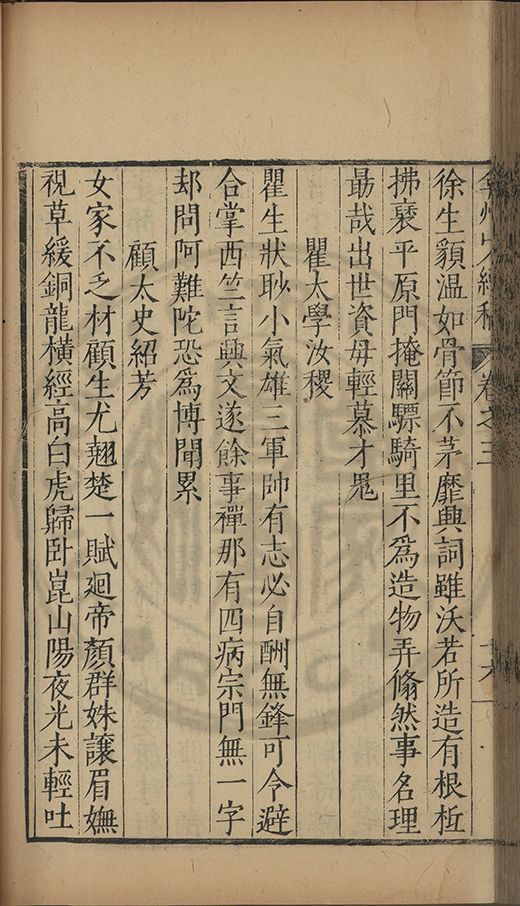 弇州山人續稿 卷之三
徐生貌溫如骨節不茅靡興詞雖沃若所造有根柢
拂裦平原門掩關驃騎里不爲造物弄翛然事名理
勗哉出世資毋輕慕才鬼
瞿太學汝稷
瞿生狀眇小氣雄三軍帥有志必自酬無鋒可令避
合掌西竺言興文遂餘事禪那有四病宗門無一字
却問阿難陀恐爲博聞累
顧太史紹芳
女家不乏材顧生尤翹楚一賦迴帝顏群姝讓眉嫵
視草緩銅龍橫經高白虎歸卧崑山陽夜光未輕吐